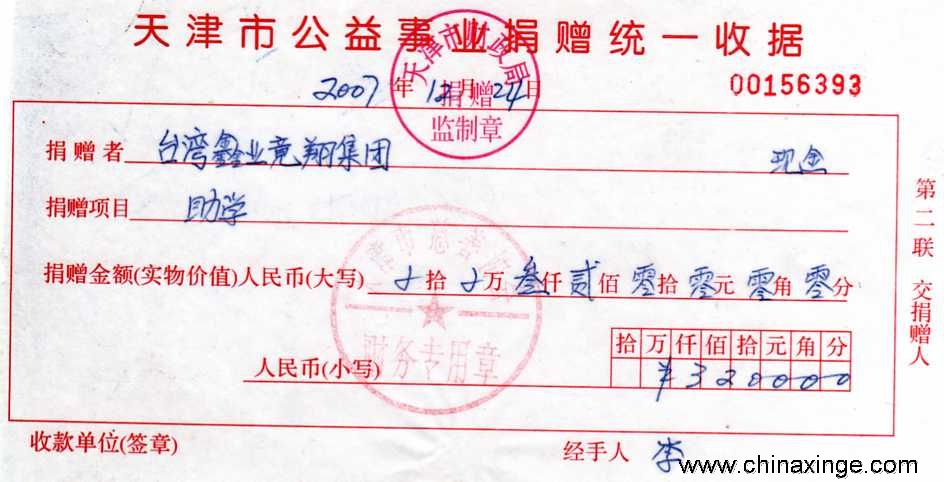 天津市公益事业捐赠统一收据
天津市财政局
捐赠
监制章
2007年12月24日
00156393
捐赠者 台湾鑫业竟翔集团 现金
捐赠项目 助学
捐赠金额(实物价值)人民币(大写) 拾 万 叁仟 贰佰 零拾 零元 零角 零分
财务专用章
拾万仟佰拾元角分
人民币(小写) ¥320000
收款单位(签章) 经手人 李
第二联 交捐赠人
www.chinaxinge.com